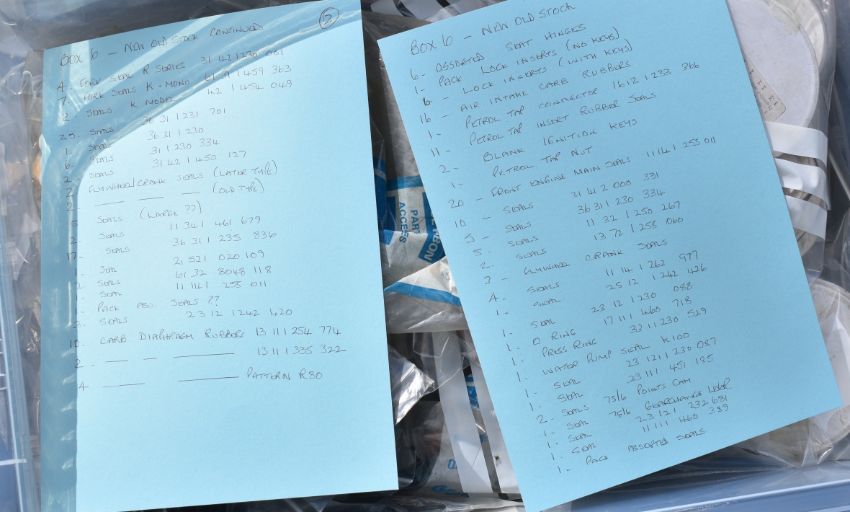 BOX 6 - NEW OLD STOCK CONTINUED
2
4 - FORK SEAL R SERIES 31 42 1 230
7 - FORK SEALS K - MONO 1 459 363
2 - SEALS K MODEL 1 454 049
25 - SEALS 36 31 1 231 701
1 - SEALS 36 31 1 230
6 - SEALS 31 1 230 334
SEALS 31 42 1 450 127
FLYWHEEL/CRANK SEALS (LATER TYPE)
(OLD TYPE)
SEALS (LARGE ??)
2 - SEALS 11 341 461 679
17 - SEALS 36 31 1 235 836
1 - SEAL 21 521 020 109
2 - SEALS 61 32 8048 118
1 - SEAL 11 1421 255 011
1 - PACK SEALS ??
SEALS 23 12 1242 420
10 - CARB DIAPHRAGM RUBBERS 13 11 1 254 774
2 - 13 11 1 335 322
4 - PATTERN R80
BOX 6 - NEW OLD STOCK
6 - ASSORTED SEAT HINGES
1 - PACK LOCK INSERTS (NO KEYS)
6 - LOCK INSERTS (WITH KEYS)
16 - AIR INTAKE CARB RUBBERS
1 - PETROL TAP CONNECTOR 16 12 1 233 366
11 - PETROL TAP INSERT RUBBER SEALS
2 - BLANK IGNITION KEYS
1 - PETROL TAP NUT
20 - FRONT ENGINE MAIN SEALS 11 141 255 011
10 - SEALS 31 42 2 000 331
5 - SEALS 36 31 1 230 334
5 - SEALS 11 32 1 250 267
SEALS 13 72 1 258 060
FLYWHEEL CRANK SEALS
4 - SEALS 11 14 1 262 977
1 - SEAL 25 12 1 242 426
1 - SEAL 23 12 1 230 088
1 - O RING 17 111 460 718
1 - PRESS RING 33 11 1 230 529
1 - WATER PUMP SEAL K100
1 - SEAL 23 121 230 087
1 - SEAL 23 111 457 185
2 - SEALS 75/6 POINTS CAM
1 - SEAL 75/6 GEARCHANGE LEVER
1 - SEAL 23 121 232 681
1 - SEAL 11 111 460 389
1 - PACK ASSORTED SEALS
PART